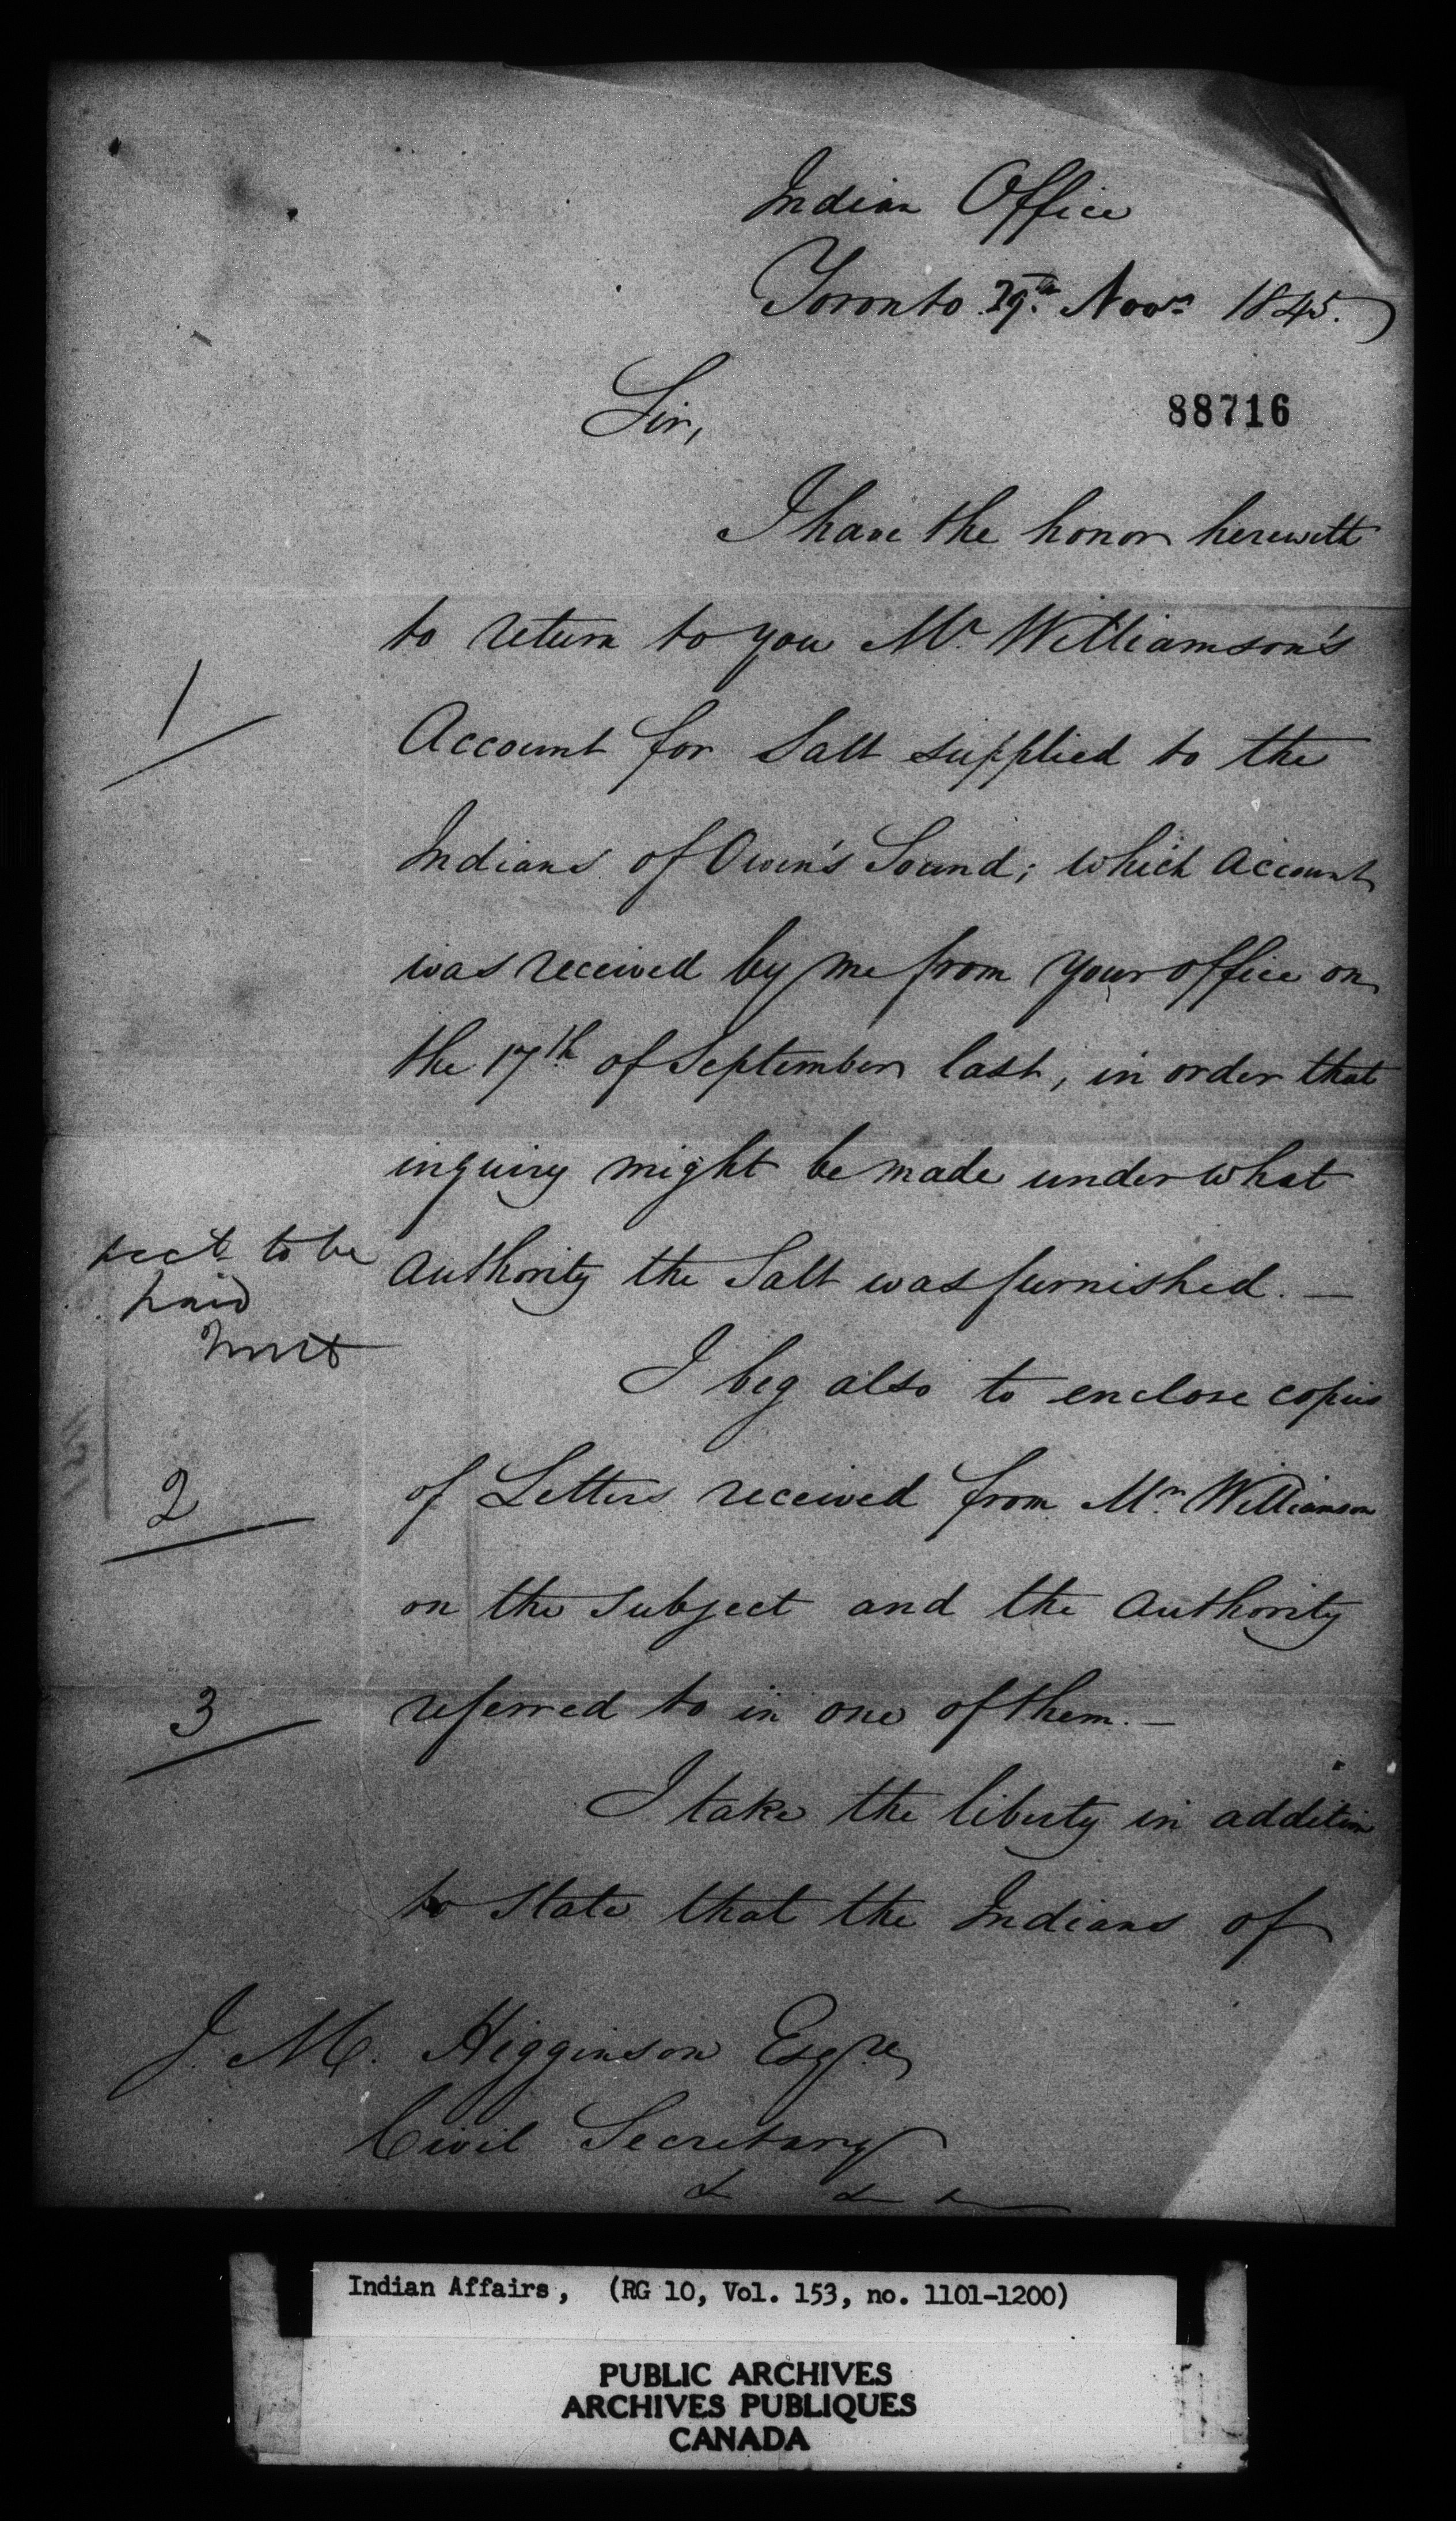 Indian Office
Toronto 29th Novr 1845.
88716
Sir,
I have the honor herewith
to return to you Mr. Williamson's
1
Account for Salt supplied to the
Indians of Owen's Sound; which account
was received by me from your office on
the 17th of September last, in order that
inquiry might be made under what
to be
paid
authority the Salt was furnished. —
I beg also to enclose copies
2
of Letters received from Mr. Williamson
on the subject and the authority
3
referred to in one of them. —
I take the liberty in addition
to state that the Indians of
J. M. Higginson Esqre
Civil Secretary
& & &
Indian Affairs, (RG 10, Vol. 153, no. 1101-1200)
PUBLIC ARCHIVES
ARCHIVES PUBLIQUES
CANADA